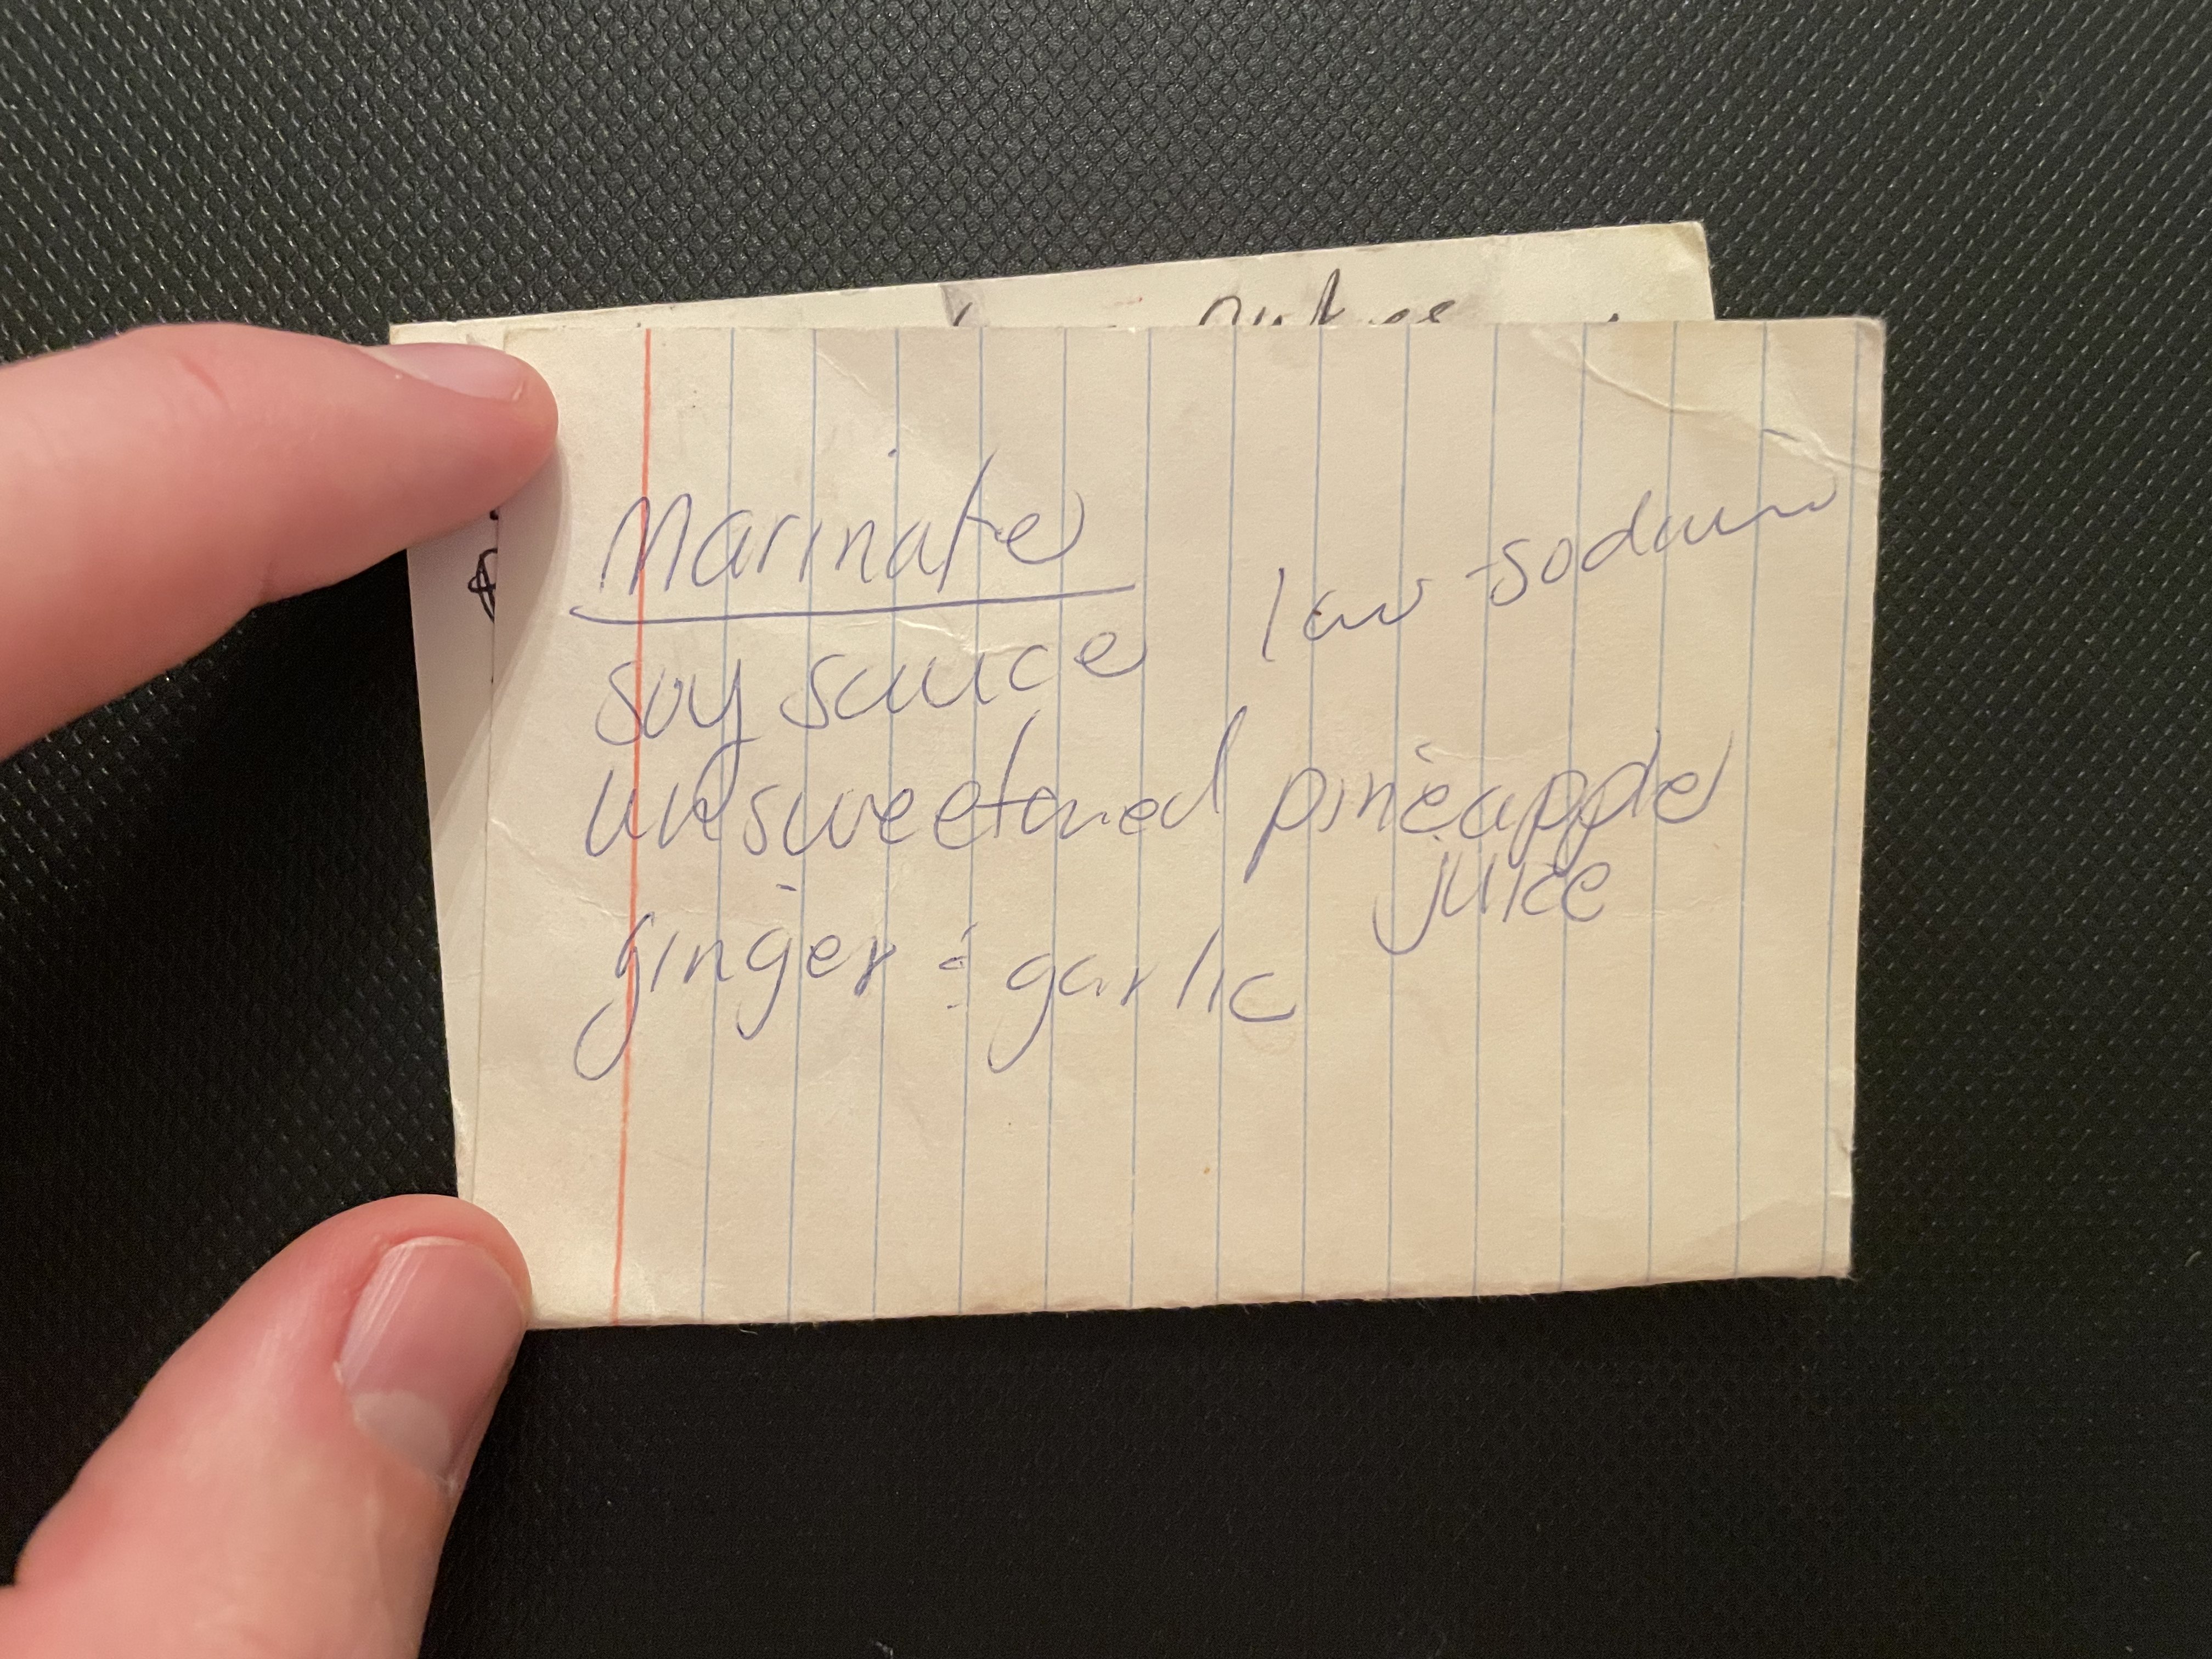 Marinate
soy sauce low sodium
unsweetened pineapple
juice
ginger & garlic